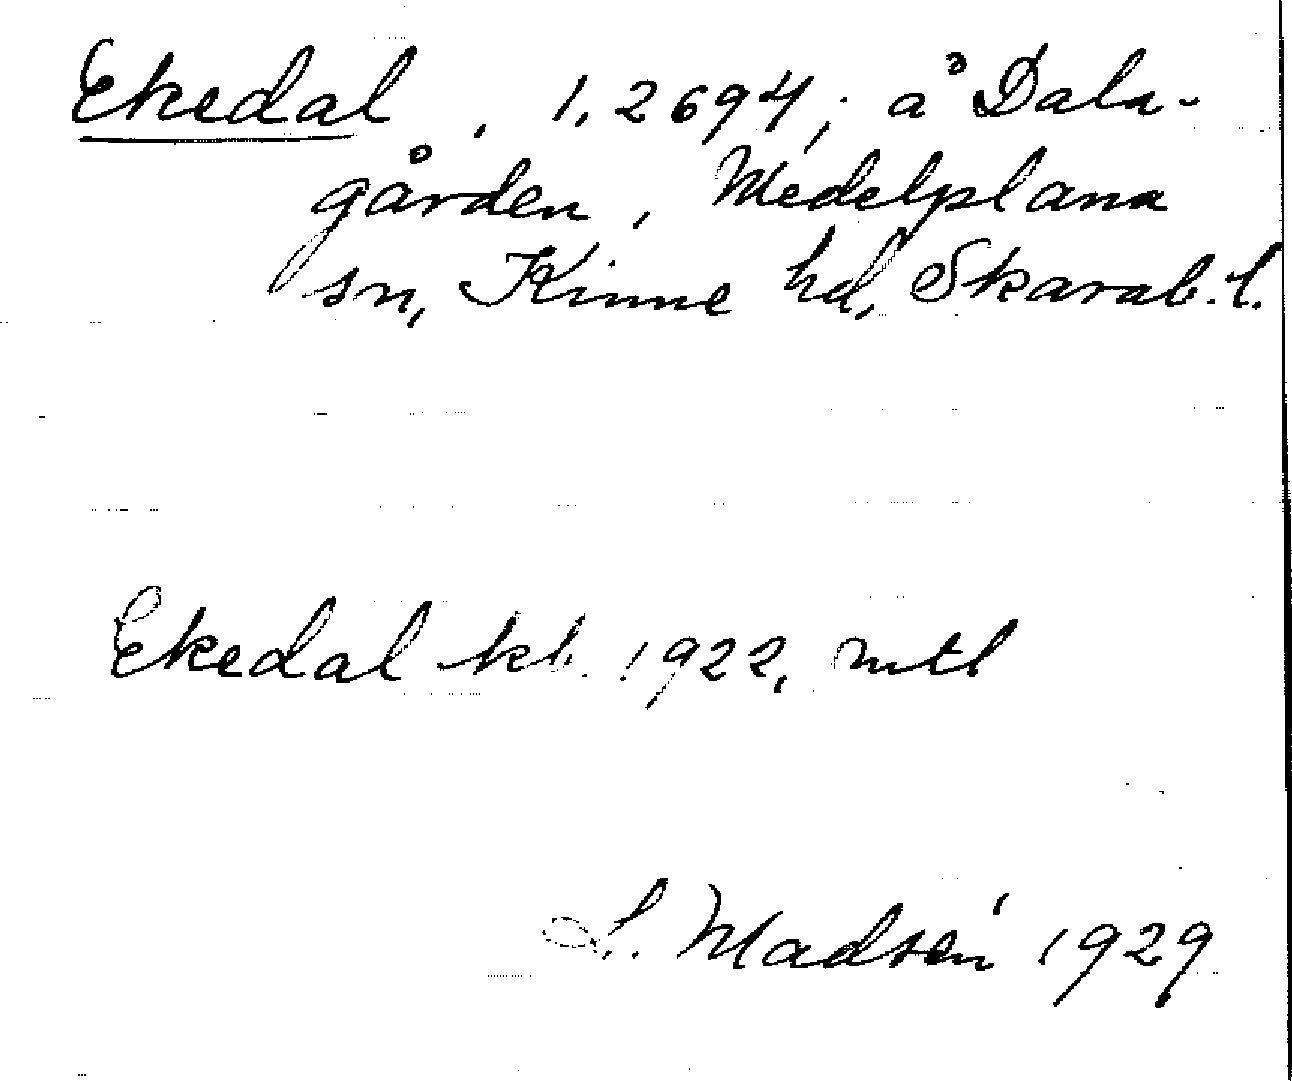 Ekedal, 1,2694; å Dala-
gården, Medelplana
sn, Kinne hd, Skarab. l.
Ekedal kb. 1922, mtl
L. Madsén 1929